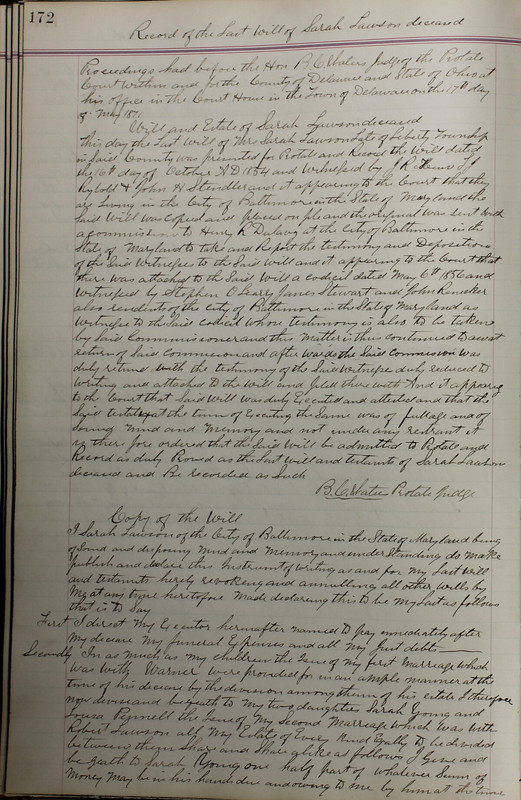 172
Record of the Last Will of Sarah Lawson deceased
Proceedings had before the Hon B.C. Waters Judge of the Probate
Court within and for the County of Delaware and State of Ohio at
his office in the Court House in the Town of Delaware on the 17th day
of May 1871
Will and Estate of Sarah Lawson deceased
This day the Last Will of Mrs Sarah Lawson Late of Liberty Township
in said County was presented for Probate and Record the Will dated
the 16th day of October A D 1854 and Witnessed by J R
& John H Standler and it appearing to the Court that they
are Living in the City of Baltimore in the State of Maryland the
Said Will was Copied and placed on file and the original was Sent with
a commission to Henry R Dulany at the City of Baltimore in the
State of Maryland to take and Report the testimony and Deposition
of the Said Witnesses to the Said Will and it appearing to the Court that
there was attached to the Said Will a codicil dated May 6th 1856 and
Witnessed by Stephen O Leary James Stewart and John
also residents of the City of Baltimore in the State of Maryland as
Witnesses to the Said Codicil whose testimony is also to be taken
by Said Commissioner and this Matter is thus continued to await
return of Said Commission and afterwards the Said Commission was
duly returned with the testimony of the Said Witnesses duly reduced to
writing and attached to the Will and filed there with And it appearing
to the Court that Said Will was duly Executed and attested and that the
Said testator at the time of Executing the Same was of full age and of
Sound Mind and Memory and not under any restraint it
is therefore ordered that the Said Will be admitted to Probate and
Record as duly Proved as the Last Will and testament of Sarah Lawson
deceased and Be recorded as Such
B.C. Waters Probate Judge
Copy of the Will
I Sarah Lawson of the City of Baltimore in the State of Maryland being
of Sound and disposing Mind and Memory and understanding do make
publish and declare this Instrument of Writing as and for My Last Will
and testament hereby revoking and annulling all other wills by
Me at any time heretofore Made declaring this to be my Last as follows
that is to Say
First I direct My Executor hereinafter named to pay immediately after
My decease My funeral Expenses and all My Just debts
Secondly In as much as My children the Issue of My first Marriage which
was with Warner were provided for in an ample manner at the
time of his decease by the division among them of his estate I therefore
now devise and bequeath to My two daughters Sarah Young and
Louisa the Issue of My Second Marriage which was with
Robert Lawson all My Estate of Every Kind Equally to be divided
between them Share and Share alike as follows I Give and
bequeath to Sarah Young one half part of whatever Sum of
Money May be in his hands due and owing to me by him at the time